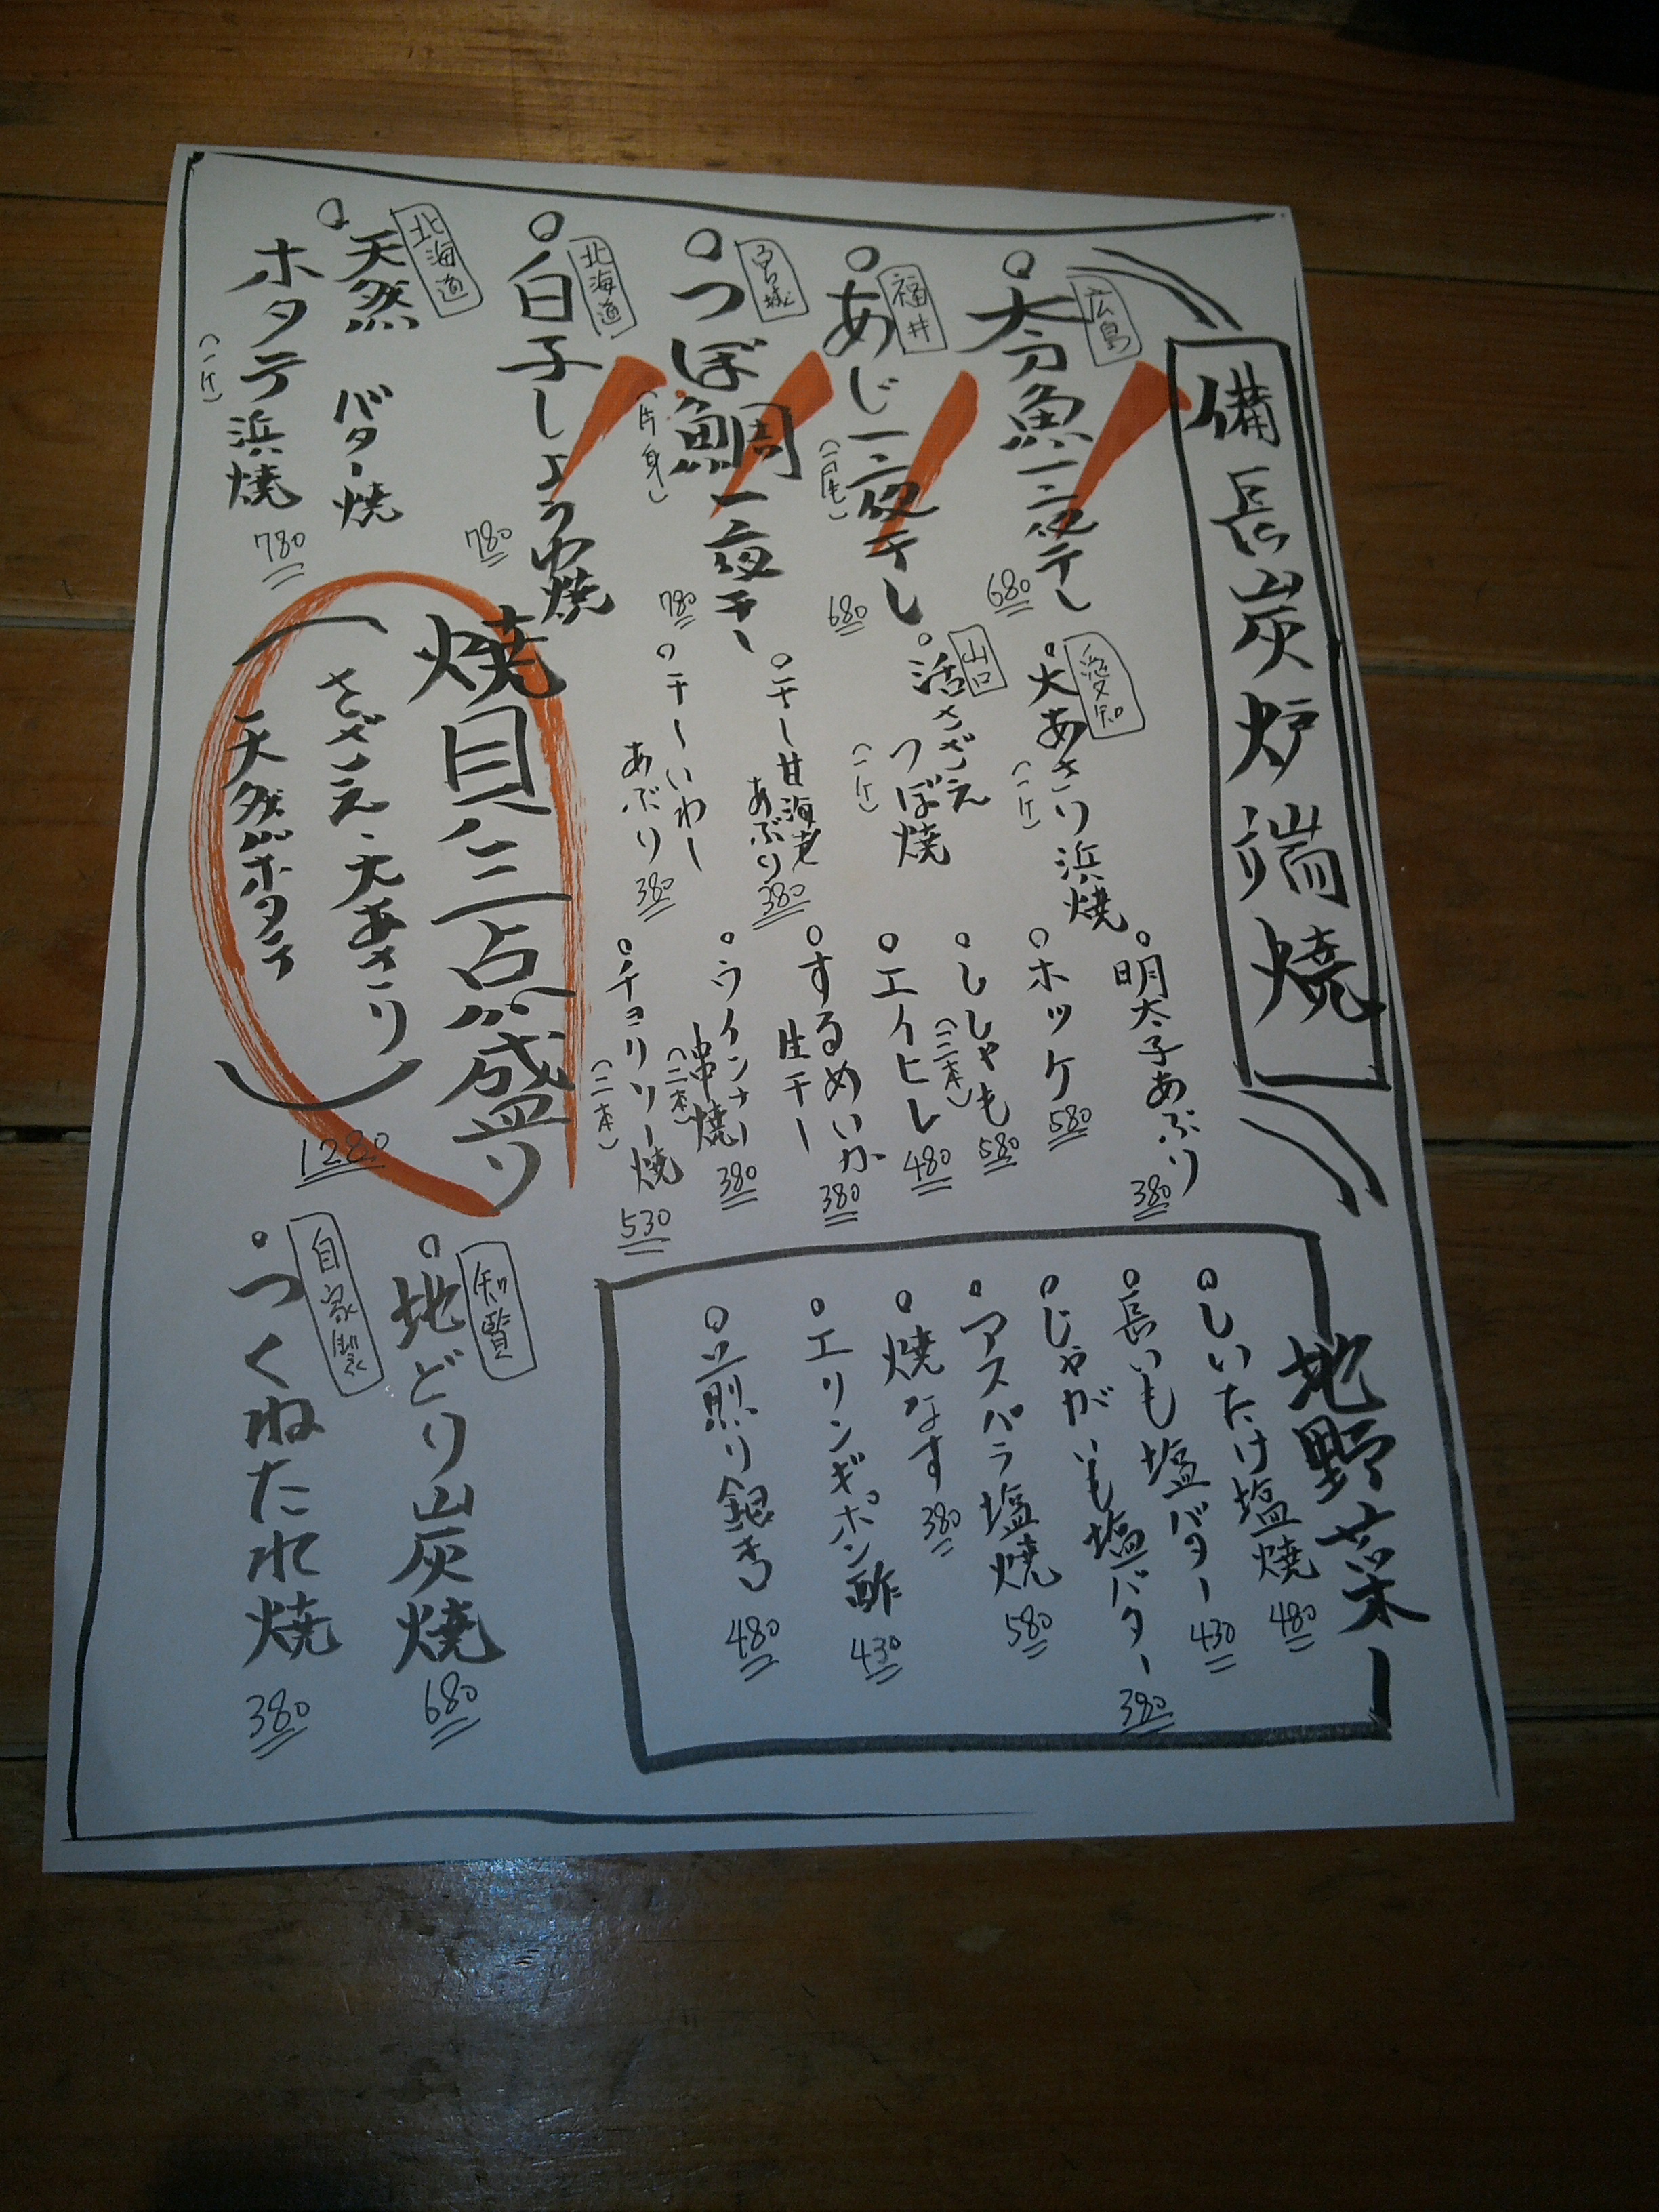 備長炭炉端焼
広島
太刀魚一夜干し
680
福井
あじ一夜干し
(一尾)
680
宮城
つぼ鯛一夜干し
(片身)
780
北海道
白子しょうゆ焼
780
北海道
天然
バター焼
ホタテ浜焼
(一ケ)
780
愛知
大あさり浜焼
(一ケ)
山口
活さざえ
つぼ焼
(一ケ)
干し甘海老
あぶり
380
干しいわし
あぶり
380
焼貝三点盛り
(さざえ、大あさり
天然ホタテ)
1280
明太子あぶり
380
ホッケ
580
ししゃも
(三本)
580
エイヒレ
480
するめいか
生干し
380
ウインナー
串焼
(二本)
380
チョリソー焼
(二本)
530
地野菜
しいたけ塩焼
480
長いも塩バター
430
じゃがいも塩バター
380
アスパラ塩焼
580
焼なす
380
エリンギポン酢
430
煎り銀杏
480
知覧
地どり炭焼
680
自家製
つくねたれ焼
380